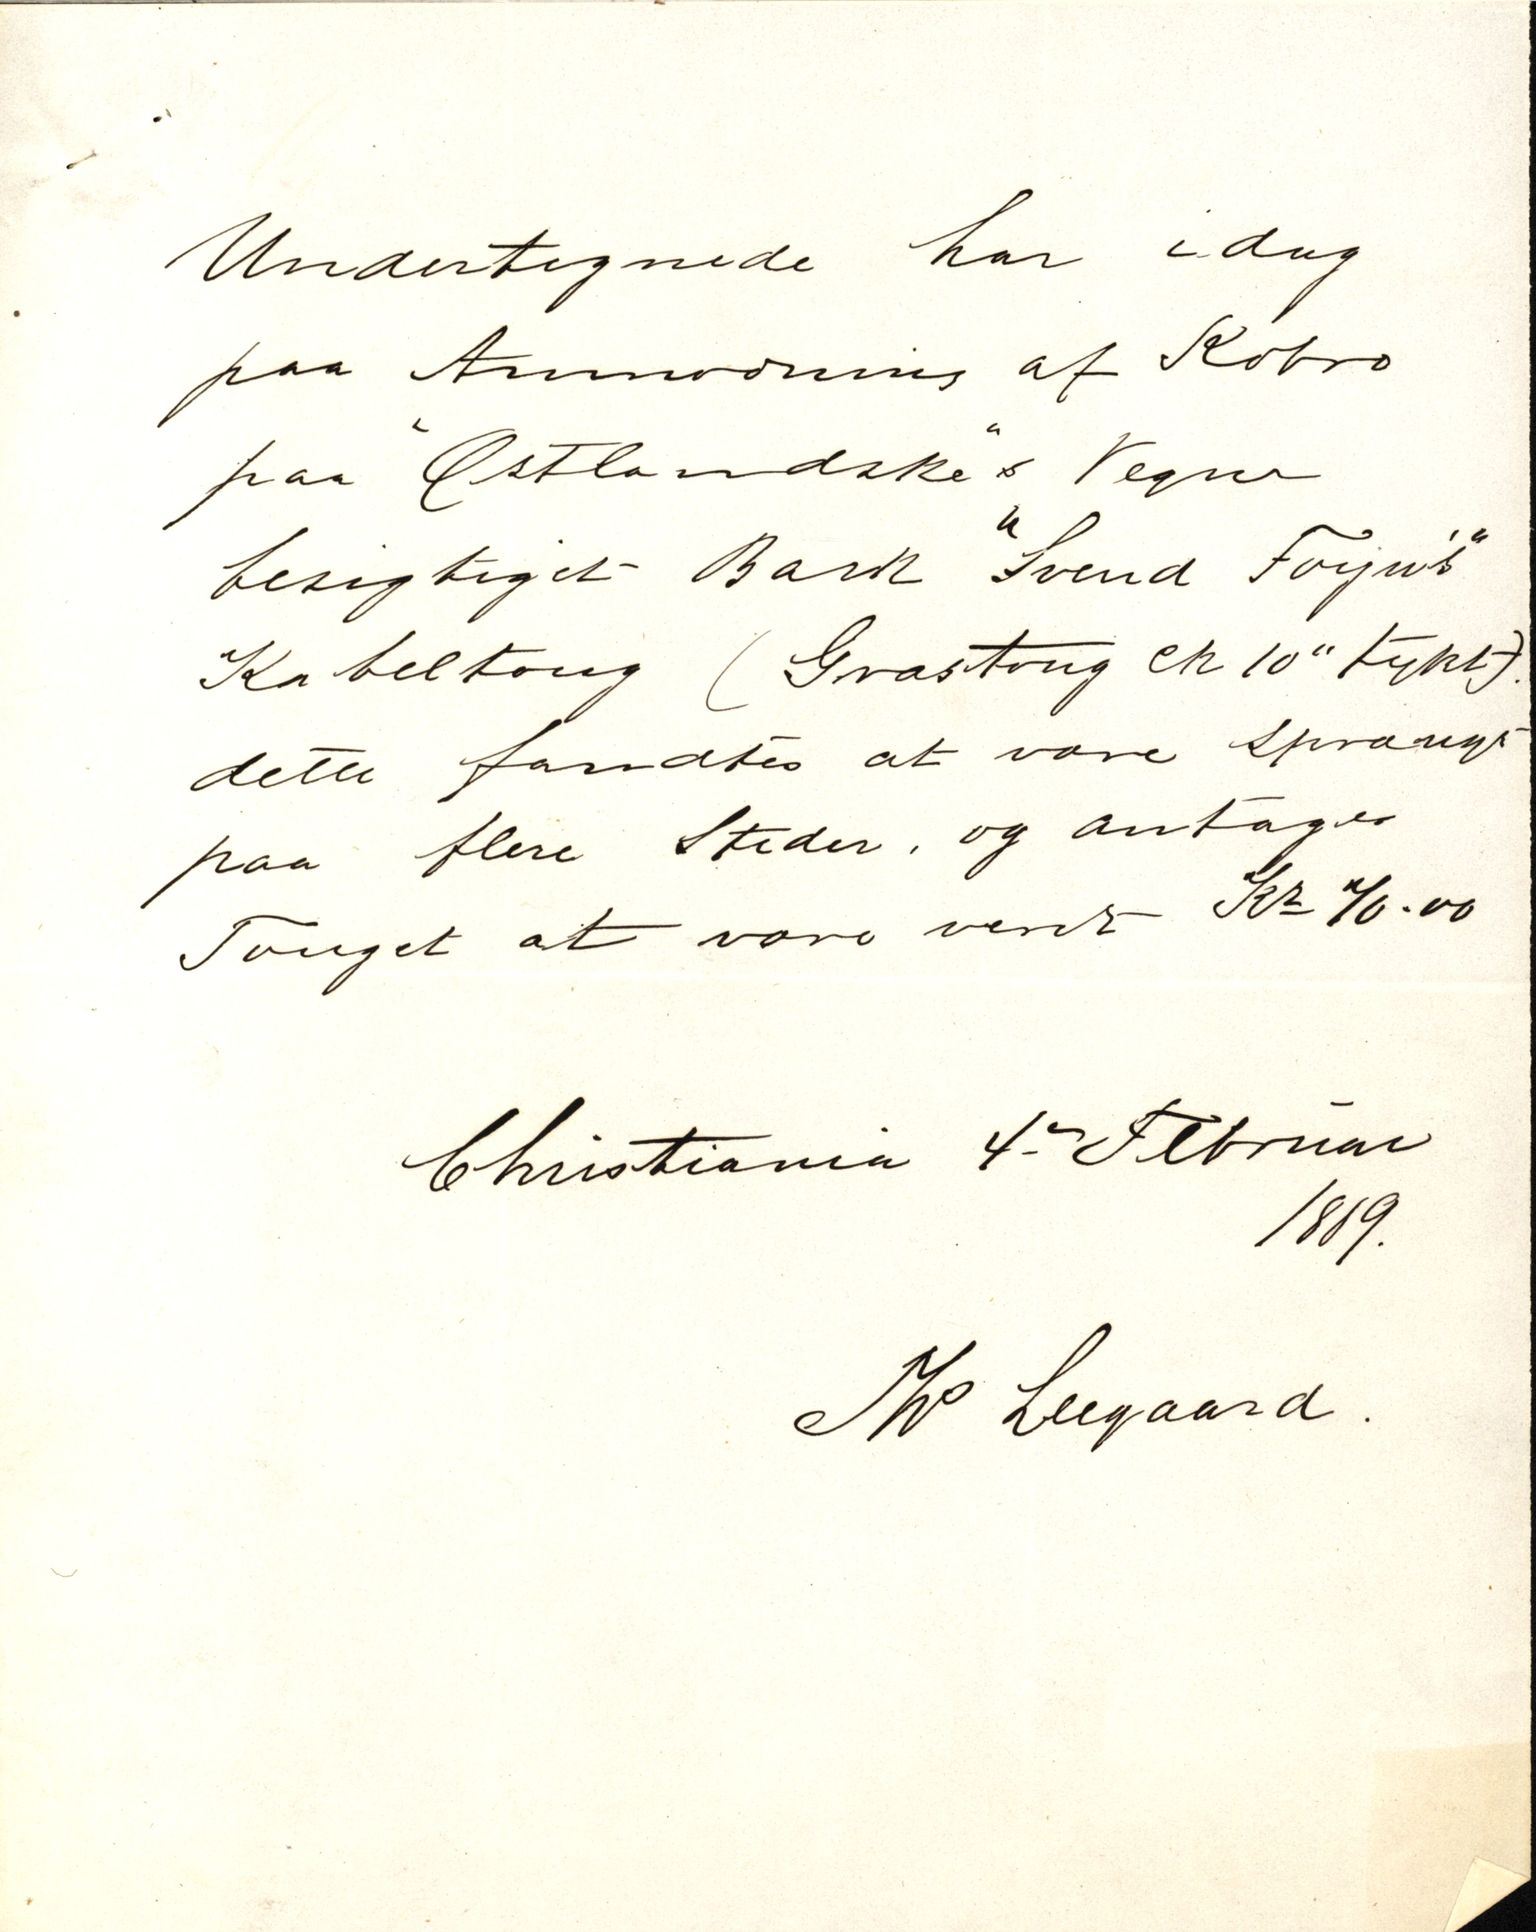 Undertegnede har idag
paa Anmodning af Kobro
paa "Østlandske"s Vegne
besigtiget Bark "Svend Foyn's"
Kabeltoug (Grastoug ck 10" tykt).
dette fandtes at være sprængt
paa flere Steder, og antages
Touget at være verdt Kr
Christiania 4de Februar
1889.
Ths Leegaard.